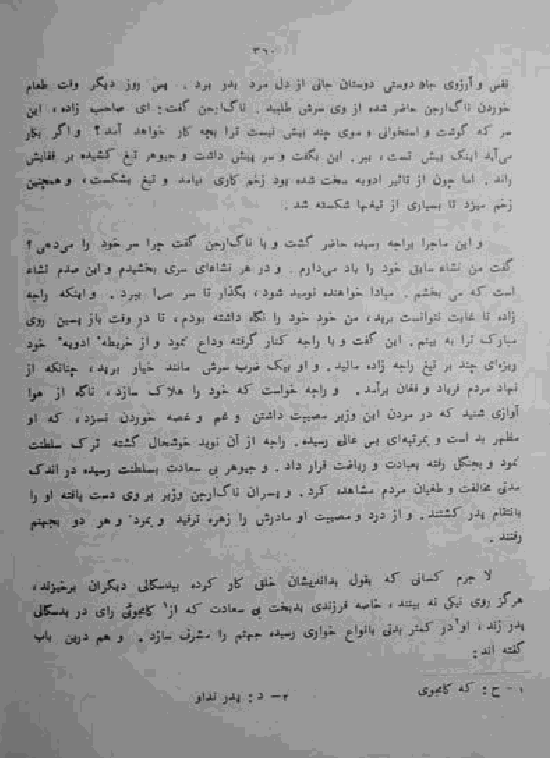 ۳۶۰
نفس و آرزوی جاه دوستی دوستان جانی از دل مرد بدر برد . پس روز دیگر وقت طعام
خوردن ناگ‌ارجن حاضر شده از وی سرش طلبید . ناگ‌ارجن گفت : ای صاحب زاده ، این
سر که گوشت و استخوانی و موی چند بیش نیست ترا بچه کار خواهد آمد ؟ و اگر بکار
می‌آید اینک پیش تست ، ببر . این بگفت و سر پیش داشت و جیوهر تیغ کشیده بر قفایش
راند . اما چون از تاثیر ادویه سخت شده بود زخم کاری نیامد و تیغ بشکست ، و همچنین
زخم میزد تا بسیاری از تیغها شکسته شد .
و این ماجرا براجه رسیده حاضر گشت و با ناگ‌ارجن گفت چرا سر خود را می‌دهی ؟
گفت من نشاء سابق خود را یاد می‌دارم . و در هر نشاءای سری بخشیدم و این صدم نشاء
است که می بخشم . مبادا خواهنده نومید شود ، بگذار تا سر مرا ببرد . و اینکه راجه
زاده تا غایت نتوانست برید ، من خود خود را نگاه داشته بودم ، تا در وقت باز پسین روی
مبارک ترا به بینم . این گفت و با راجه کنار گرفته وداع نمود و از خریطه ادویه خود
ریزه‌ای چند بر تیغ راجه زاده مالید . و او بیک ضرب سرش مانند خیار برید ، چنانکه از
نهاد مردم فریاد و فغان برآمد . و راجه خواست که خود را هلاک سازد ، ناگاه از هوا
آوازی شنید که در مردن این وزیر مصیبت داشتن و غم و غصه خوردن نسزد ، که او
مظهر بد است و بمرتبه‌ای بس عالی رسیده . راجه از آن نوید خوشحال گشته ترک سلطنت
نمود و بجنگل رفته بعبادت و ریاضت قرار داد . و جیوهر بی سعادت بسلطنت رسیده در اندک
مدتی مخالفت و طغیان مردم مشاهده کرد . و پسران ناگ‌ارجن وزیر بر وی دست یافته او را
بانتقام پدر کشتند . و از درد و مصیبت او مادرش را زهره ترقید و بمرد و هر دو بجهنم
رفتند .
لا جرم کسانی که بقول بداندیشان خلق کار کرده ببدسگالی دیگران برخیزند ،
هرگز روی نیکی نه بینند ، خاصه فرزندی بدبخت بی سعادت که از۱ کامجوئی رای در بدسگالی
پدر زند ، او۲ در کمتر مدتی بانواع خواری رسیده جهنم را مشرف سازد . و هم درین باب
گفته اند :
۱ - ح : که کامجوی
۲ - د : پدر نداو